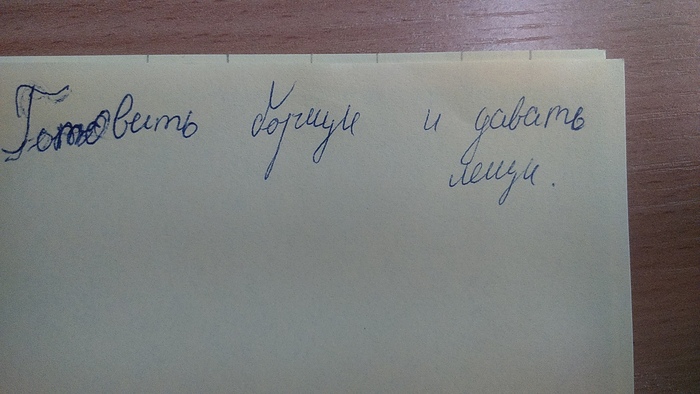 Готовить борщи и давать
лещи.